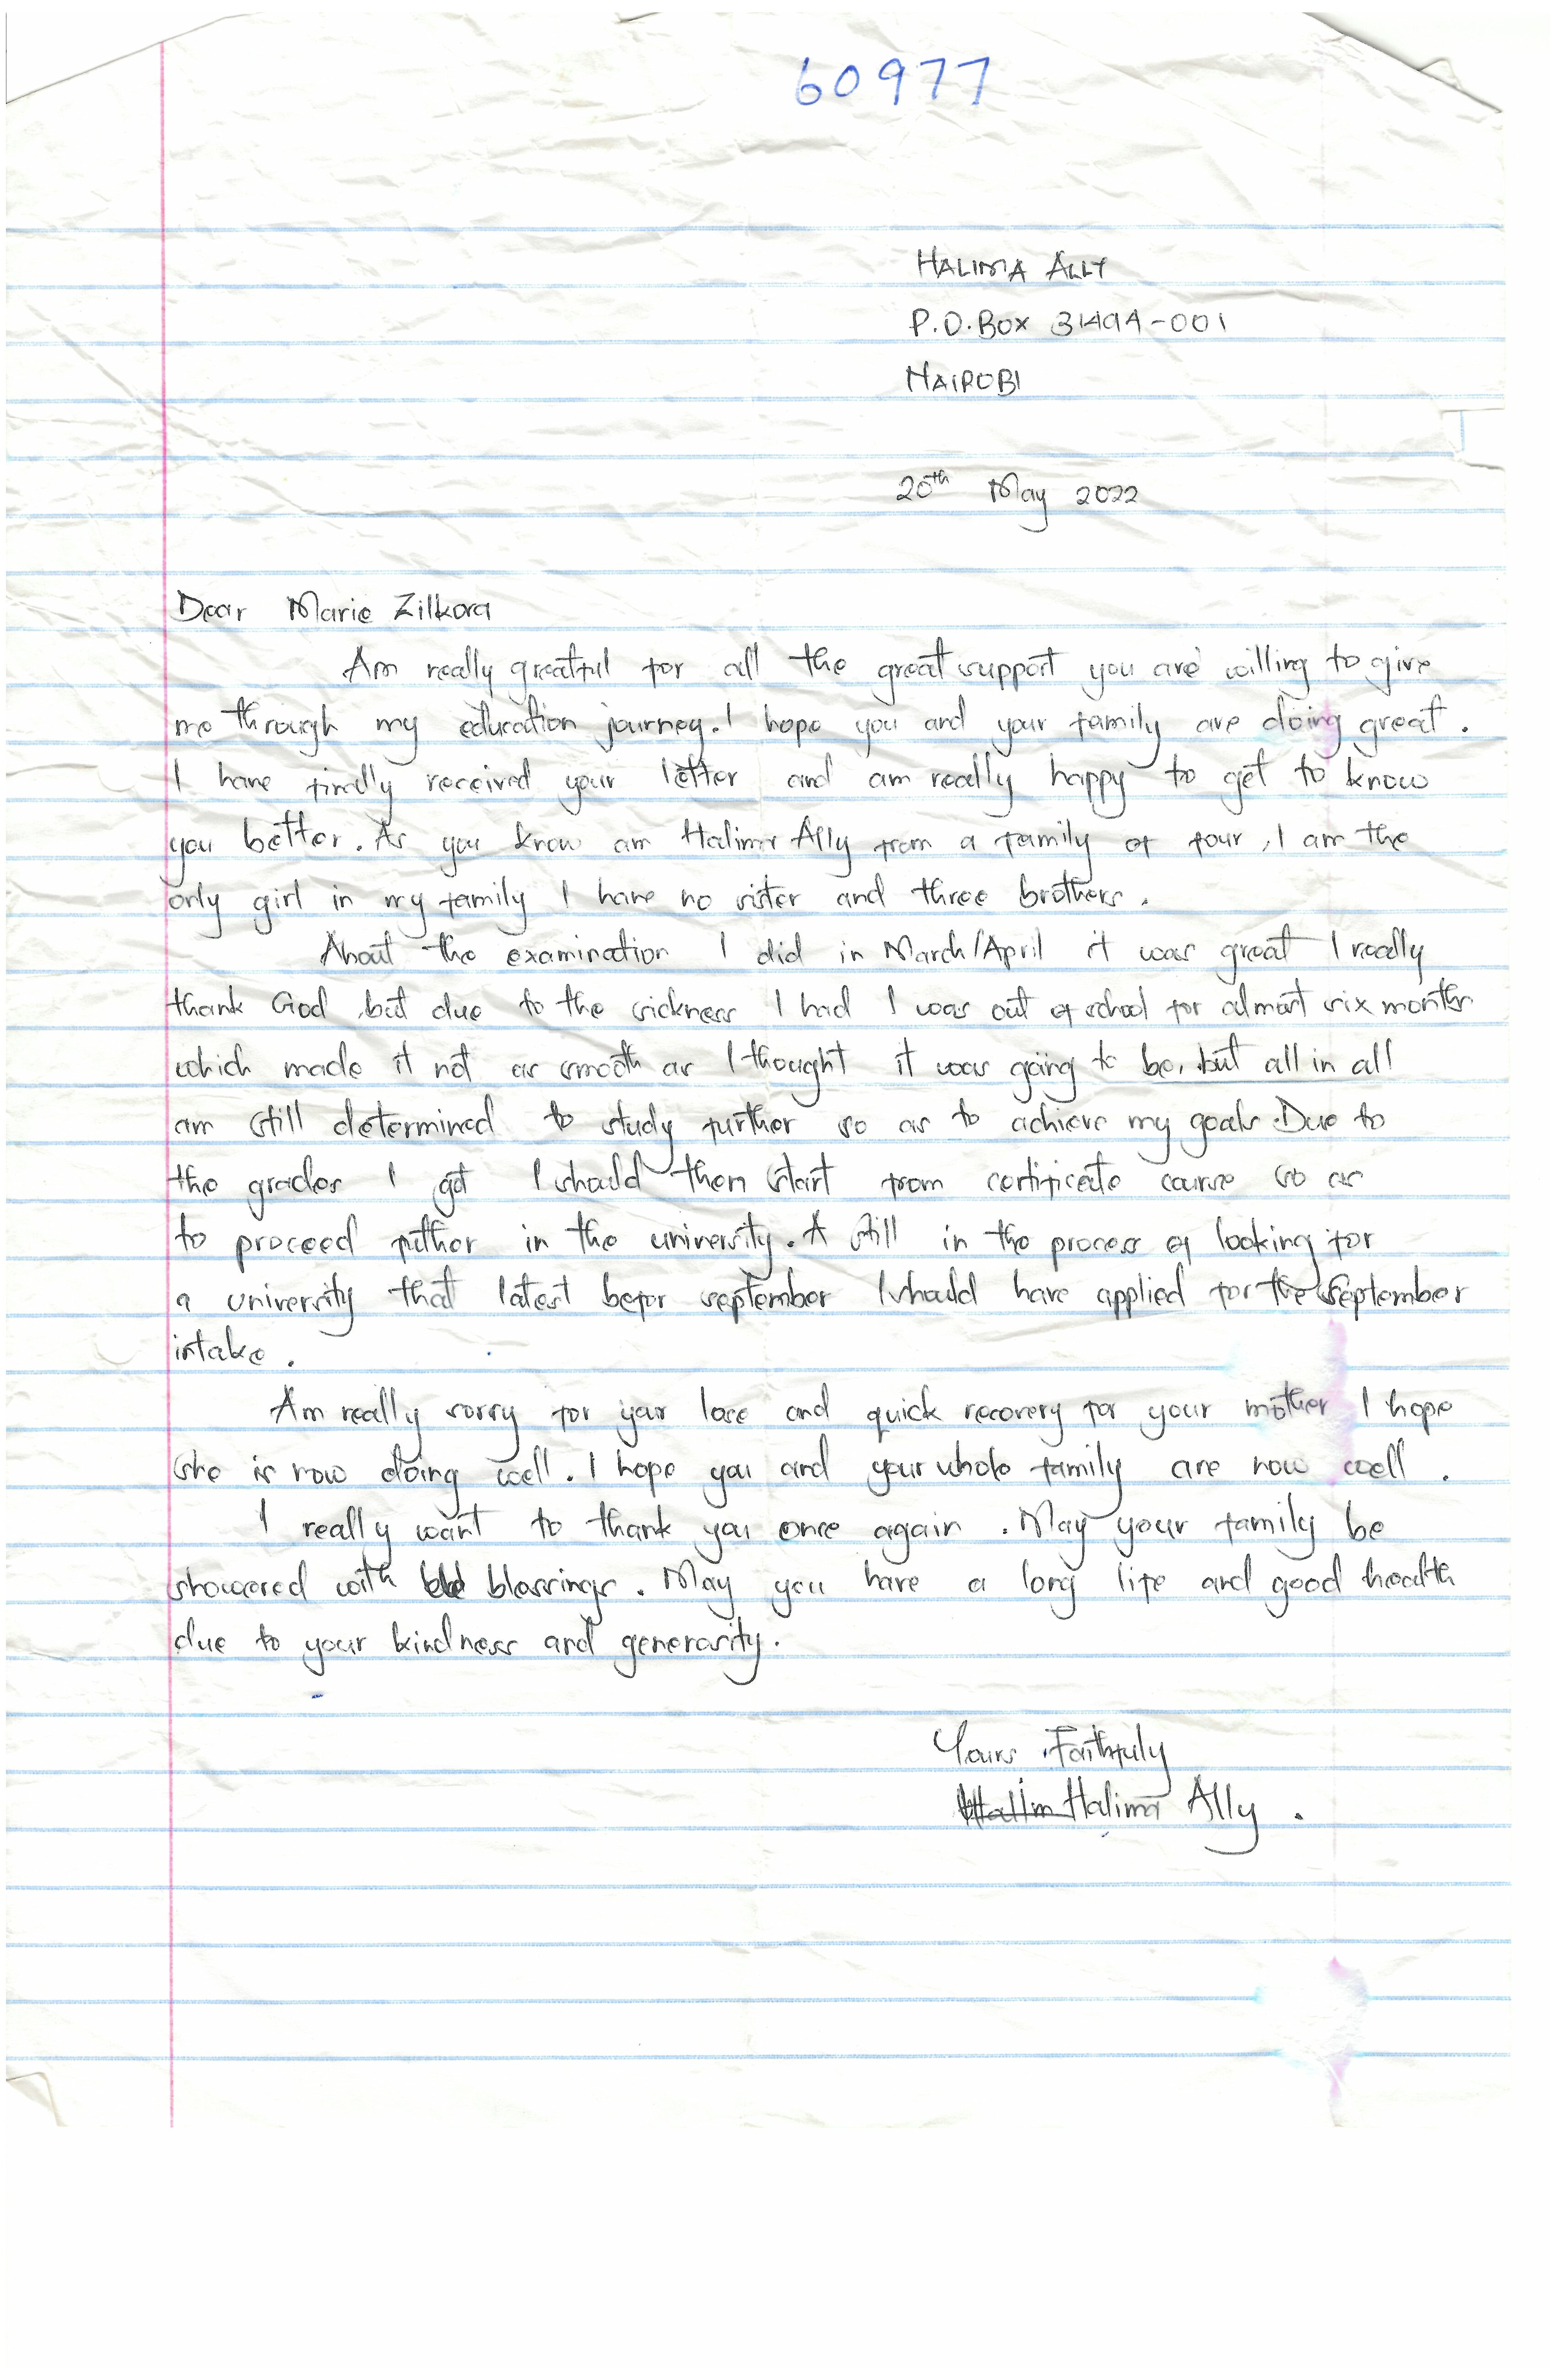 60977
HALIMA ALLY
P.O.Box 31494-001
NAIROBI
20th May 2022
Dear Marie Zilkova
Am really greatful for all the great support you are willing to give
me through my education journey. I hope you and your family are doing great.
I have finally received your letter and am really happy to get to know
you better. As you know am Halima Ally from a family of four, I am the
only girl in my family I have no sister and three brothers.
About the examination I did in March/April it was great I really
thank God, but due to the sickness I had I was out of school for almost six months
which made it not as smooth as I thought it was going to be, but all in all
am still determined to study further so as to achieve my goals. Due to
the grades I got I should then start from certificate course so as
to proceed futher in the university. A still in the process of looking for
a university that latest befor september I should have applied for the September
intake.
Am really sorry for your lose and quick recovery for your mother I hope
she is now doing well. I hope you and your whole family are now well.
I really want to thank you once again. May your family be
showered with blessings. May you have a long life and good health
due to your kindness and generosity.
Yours Faithfuly
Halim Halima Ally.